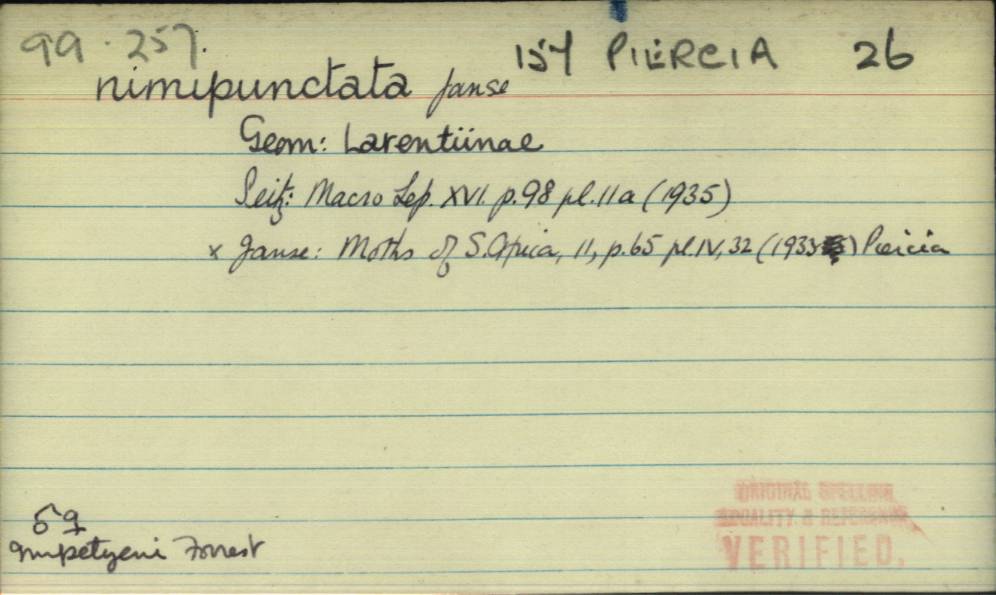 99.257. 157 PIERCIA 26
nimipunctata Janse
Geom: Larentiinae
Seitz: Macro Lep. XVI. p.98 pl.11a (1935)
x Janse: Moths of S. Africa, 11, p.65 pl.IV, 32 (1933) Piercia
♂♀
Gmpetyeni Forrest
ORIGINAL SPELLING
LOCALITY & REFERENCE
VERIFIED.